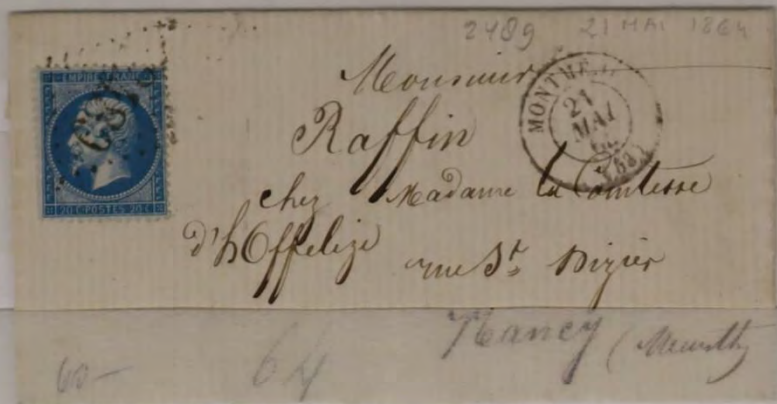 2489 21 MAI 1864
EMPIRE FRANC
20 C POSTES 20 C
MONTMÉ
21
MAI
Monsieur
Raffin
chez Madame la Comtesse
d'hOffelize rue St. Dizier
Nancy (Meurthe
60— 64